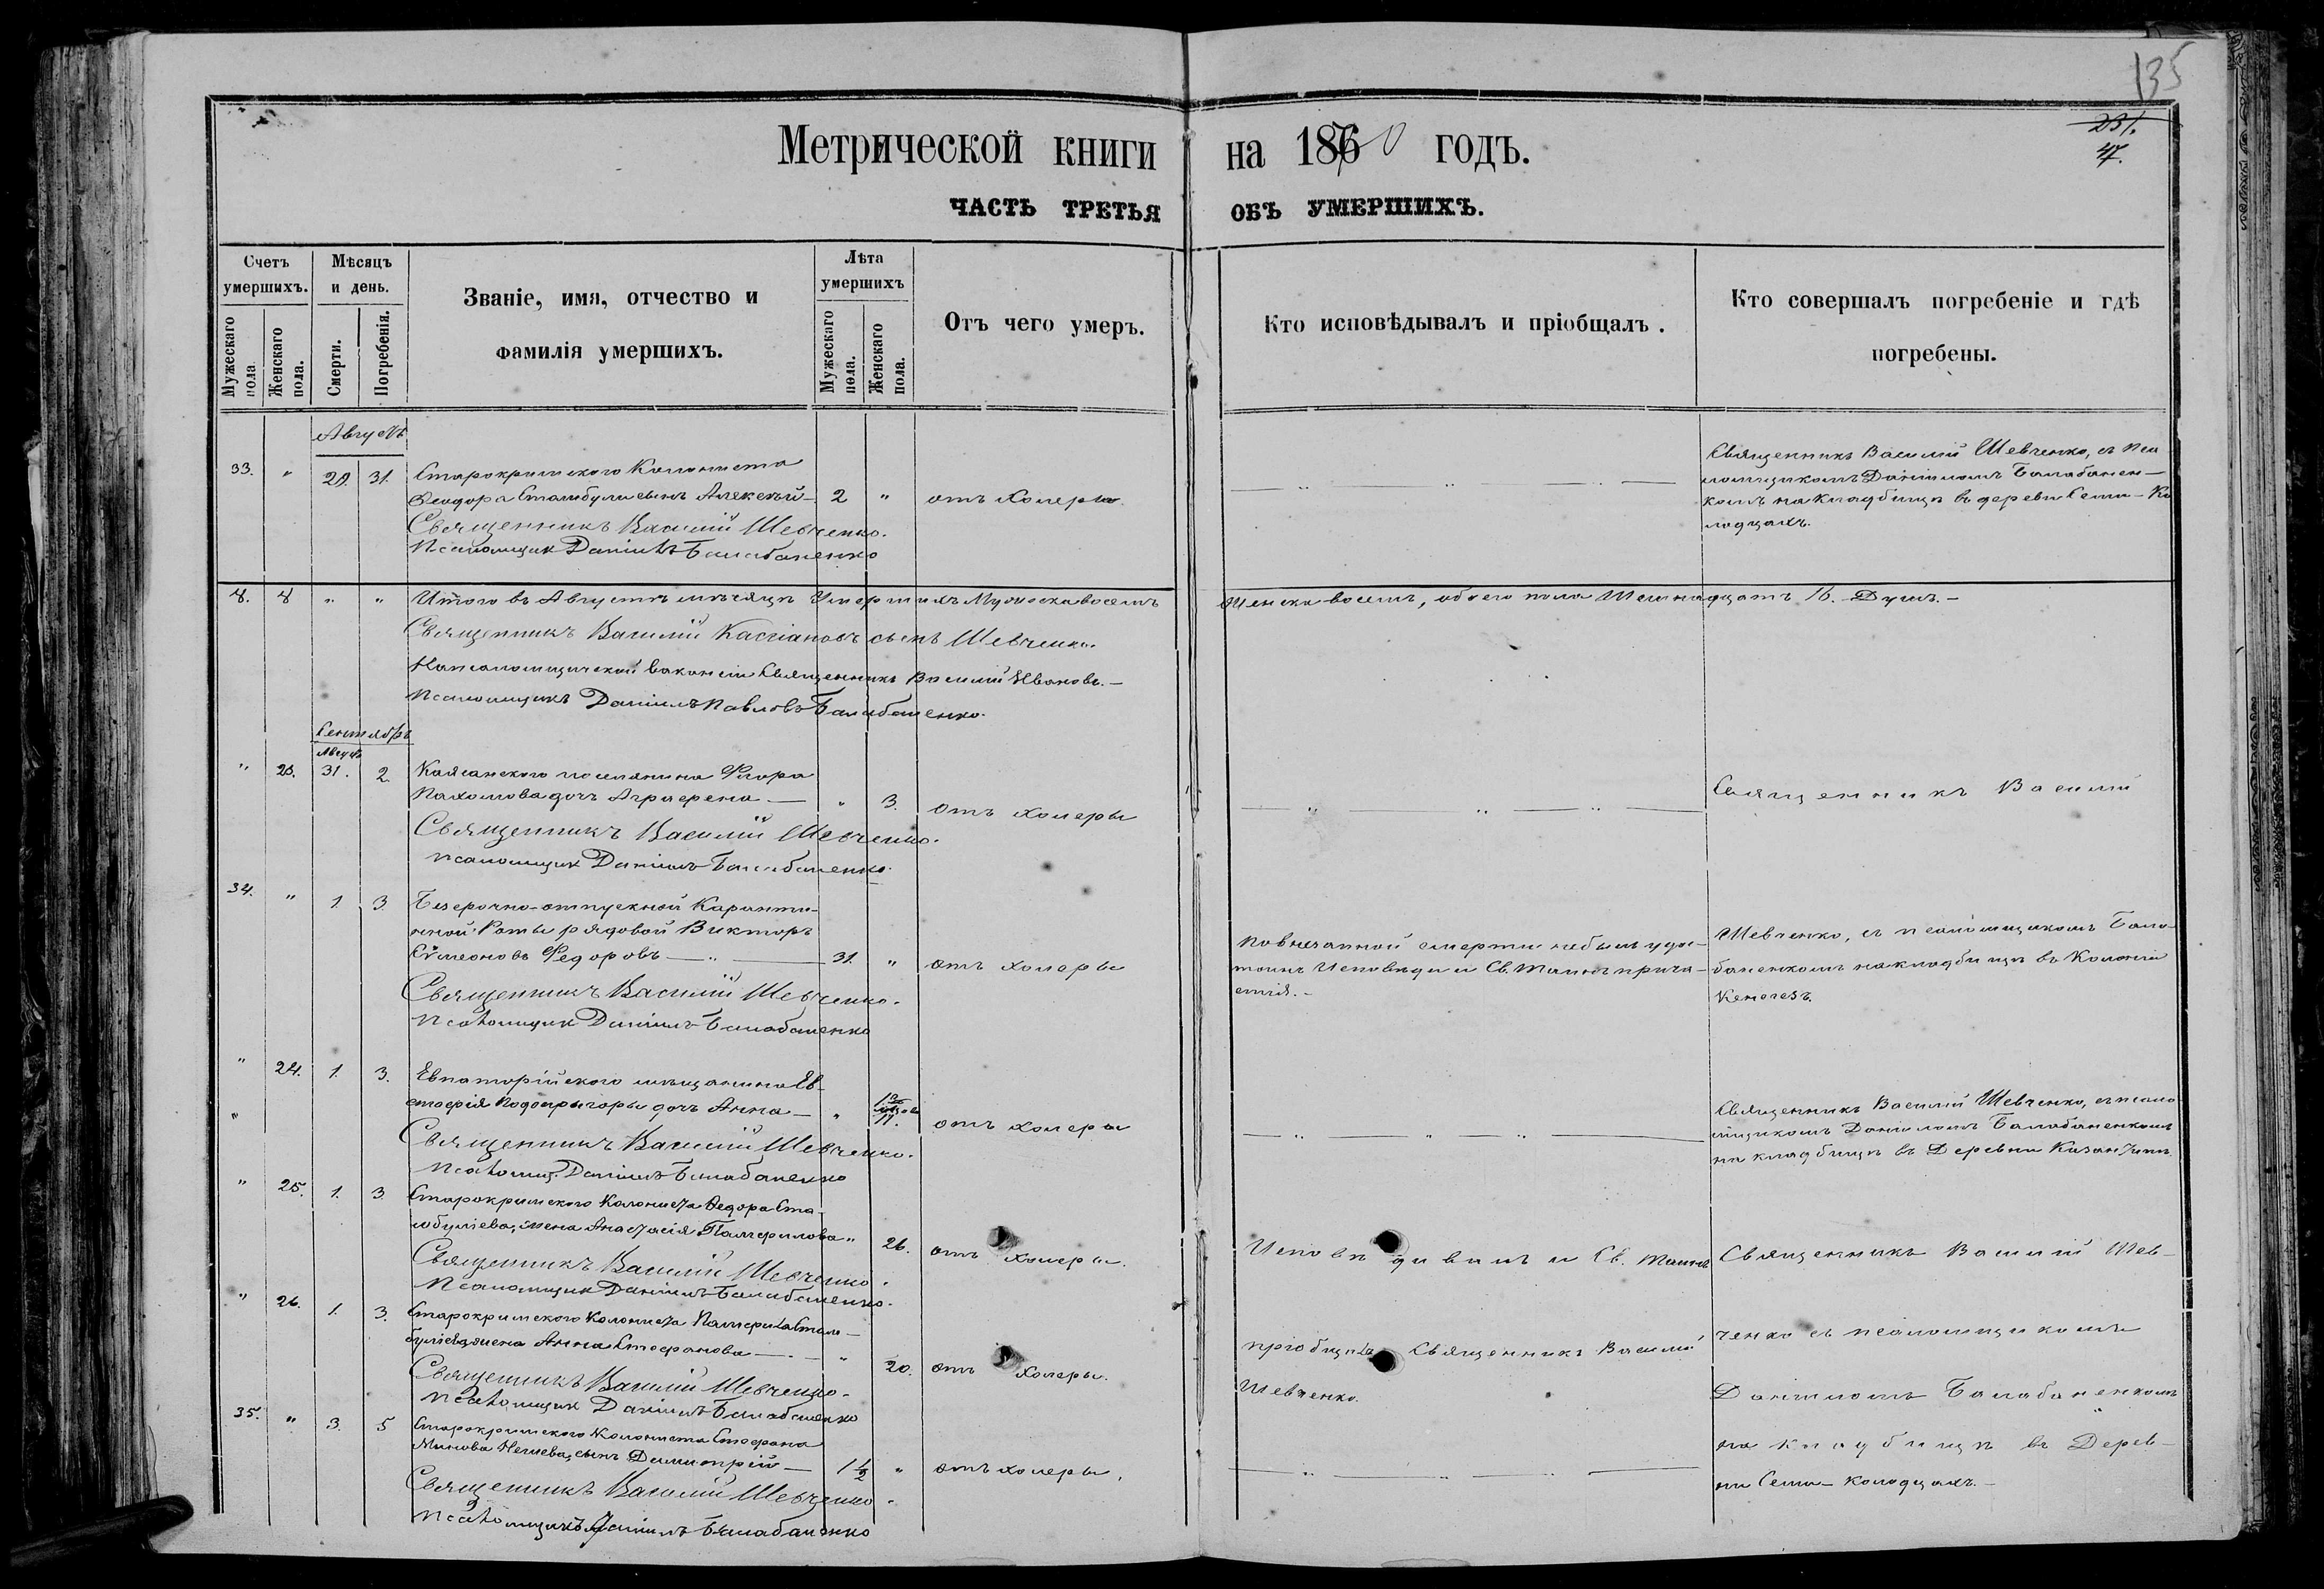 135
231.
47.
Метрической книги на 1870 годъ.
ЧАСТЬ ТРЕТЬЯ ОБЪ УМЕРШИХЪ.
Счетъ умершихъ.
Мужескаго пола
Женскаго пола.
Мѣсяцъ и день.
Смерти.
Погребенія.
Званіе, имя, отчество и
фамилія умершихъ.
Лѣта умершихъ
Мужескаго пола.
Женскаго пола.
Отъ чего умеръ.
Кто исповѣдывалъ и пріобщалъ.
Кто совершалъ погребеніе и гдѣ
погребены.
Августъ
33. " 29. 31. Старокрымскаго Колониста
Ѳеодора Стамбули сынъ Алексѣй — 2 " отъ Холеры.
Священникъ Василій Шевченко.
Псаломщик Даніилъ Балабаненко
Священникъ Василій Шевченко, съ Пса
ломщикомъ Даніиломъ Балабанен-
комъ на кладбищѣ въ деревнѣ Семи-Ко
лодцахъ.
8. 8 " " Итого въ Августѣ мѣсяцѣ Умершихъ Мужеска восемь
Женска восемь, обоего пола Шестнадцать 16. Душъ.-
Священникъ Василій Кассіановъ сынъ Шевченко.
На псаломщической вакансіи Священникъ Василій Ивановъ.-
Псаломщикъ Даніилъ Павловъ Балабаненко.
Сентябрь
Августъ
" 23. 31. 2. Каясанского поселянина Флора
Пахомова дочь Аграфена — " 3. отъ холеры
Священникъ Василій Шевченко.
Псаломщик Даніилъ Балабаненко.
Священникъ Василій
34. " 1. 3. Безсрочно-отпускной Каранти-
нной Роты рядовой Викторъ
Сѵмеоновъ Федоровъ — " — 31. " отъ холеры
Священникъ Василій Шевченко.
Псаломщик Даніилъ Балабаненко
По внезапной смерти небылъ удос-
тоинъ Исповѣди и Св. Таинъ прича-
стія.-
Шевченко, съ псаломщикомъ Бала-
баненкомъ на кладбищѣ въ Колоніи
Кенегезъ.
" 24. 1. 3. Евпаторійского мѣщанина Ев-
стафія Подопригоры дочь Анна — " отъ холеры
Священникъ Василій Шевченко.
Псаломщ. Даніилъ Балабаненко
Священникъ Василій Шевченко, съ псало
мщикомъ Даніиломъ Балабаненкомъ
на кладбищѣ въ Деревни
" 25. 1. 3. Старокрымского Колониста Ѳедора Ста-
мбуліева, жена Анастасія Памфилова " 26. отъ холеры.
Священникъ Василій Шевченко.
Псаломщик Даніилъ Балабаненко.
Исповѣдивалъ и Св. Таинъ
Священникъ Василій Шев-
" 26. 1. 3. Старокрымского Колониста Памфила Стам-
буліева жена Анна Стефанова — " 20. отъ холеры.
Священникъ Василій Шевченко.
Псаломщик Даніилъ Балабаненко
пріобщилъ Священникъ Василій
Шевченко.
ченко съ псаломщикомъ
Даніиломъ Балабаненкомъ
35. " 3. 5 Старокрымского Колониста Стефана
сынъ Димитрій — 1 1/2 " отъ холеры.
Священникъ Василій Шевченко.
Псаломщикъ Даніилъ Балабаненко
на кладбищѣ въ Дерев-
ни Семи-колодцахъ.-